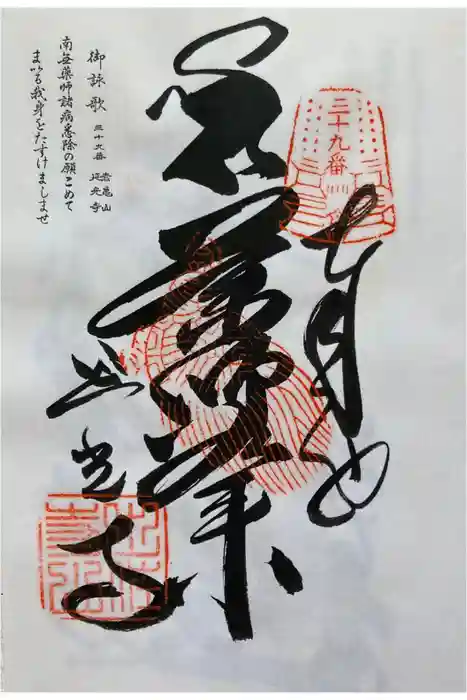 三十九番
奉納
薬師如来
延光寺
御詠歌 三十九番 赤亀山
延光寺
南無薬師諸病悉除の願こめて
まいる我身をたすけましませ